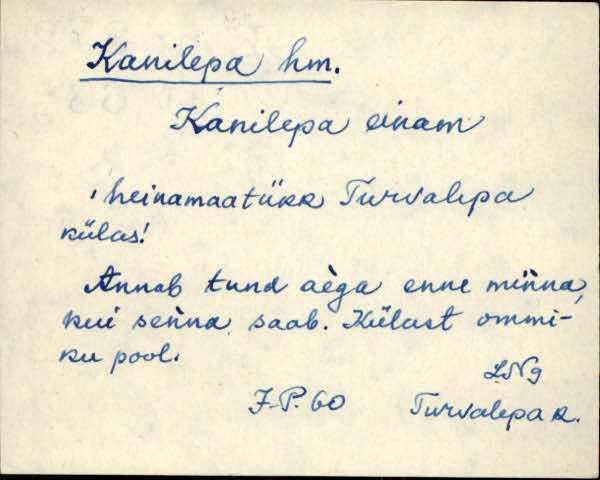 Kanilepa hm.
Kanilepa einam
'heinamaatükk Turvalepa
külas!
Annab tund aèga enne mińna,
kui seńna saab. Külast ommi-
ku pool.
LNg
J.P. 60 Turvalepa k.